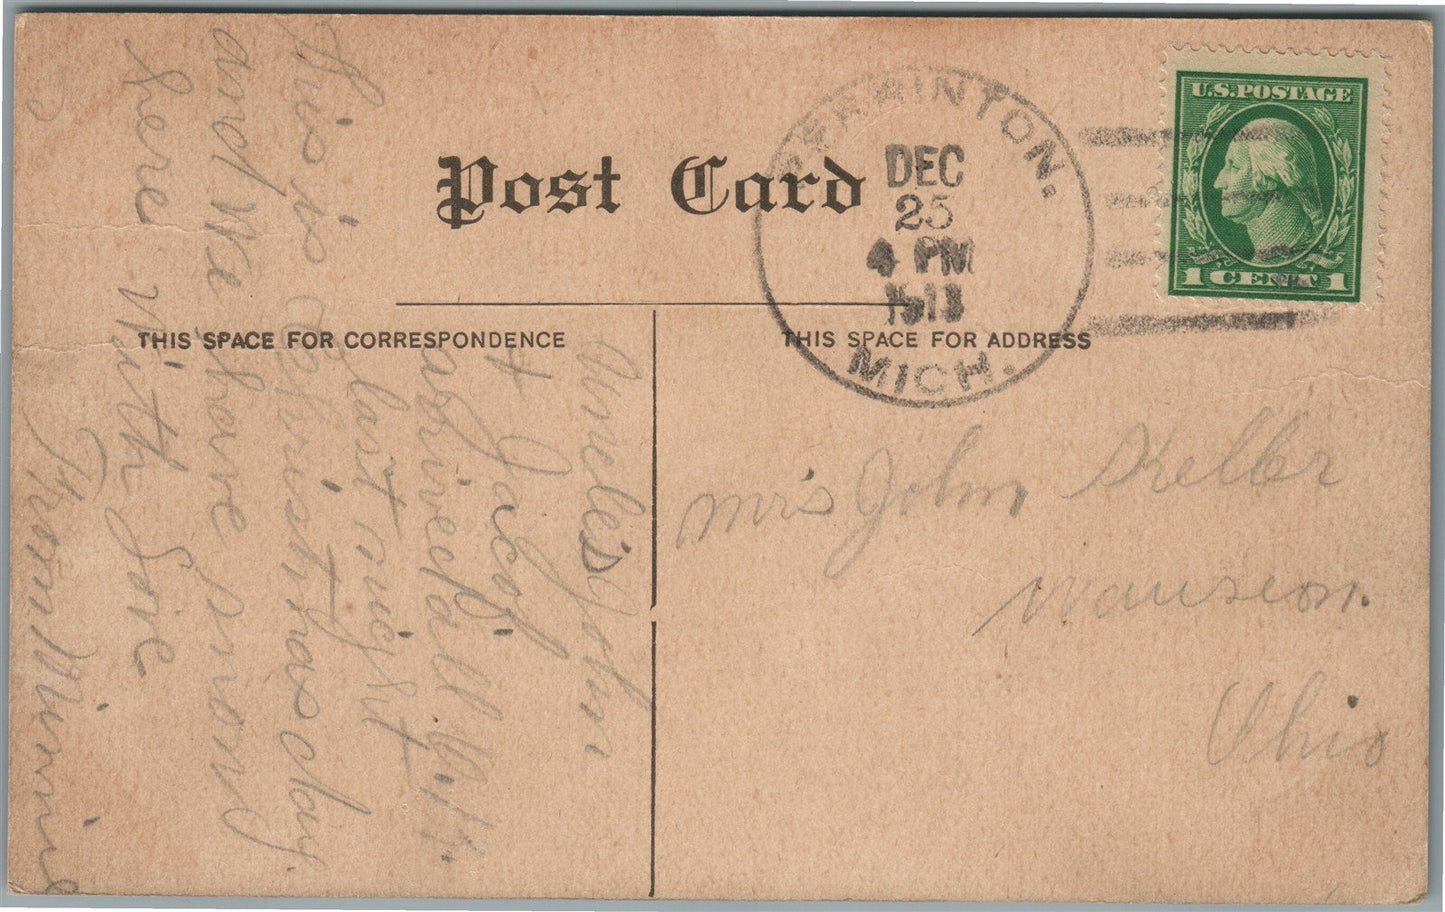 Post Card
PERRINTON.
DEC
25
4 PM
1913
MICH.
U.S. POSTAGE
1 CENT 1
THIS SPACE FOR CORRESPONDENCE
THIS SPACE FOR ADDRESS
Mrs John Keller
Wauseon.
Ohio
Uncles John
+ Jacob
arrived all O.K.
last night
This is Christmas day
and We have snow
here With love
From Minnie